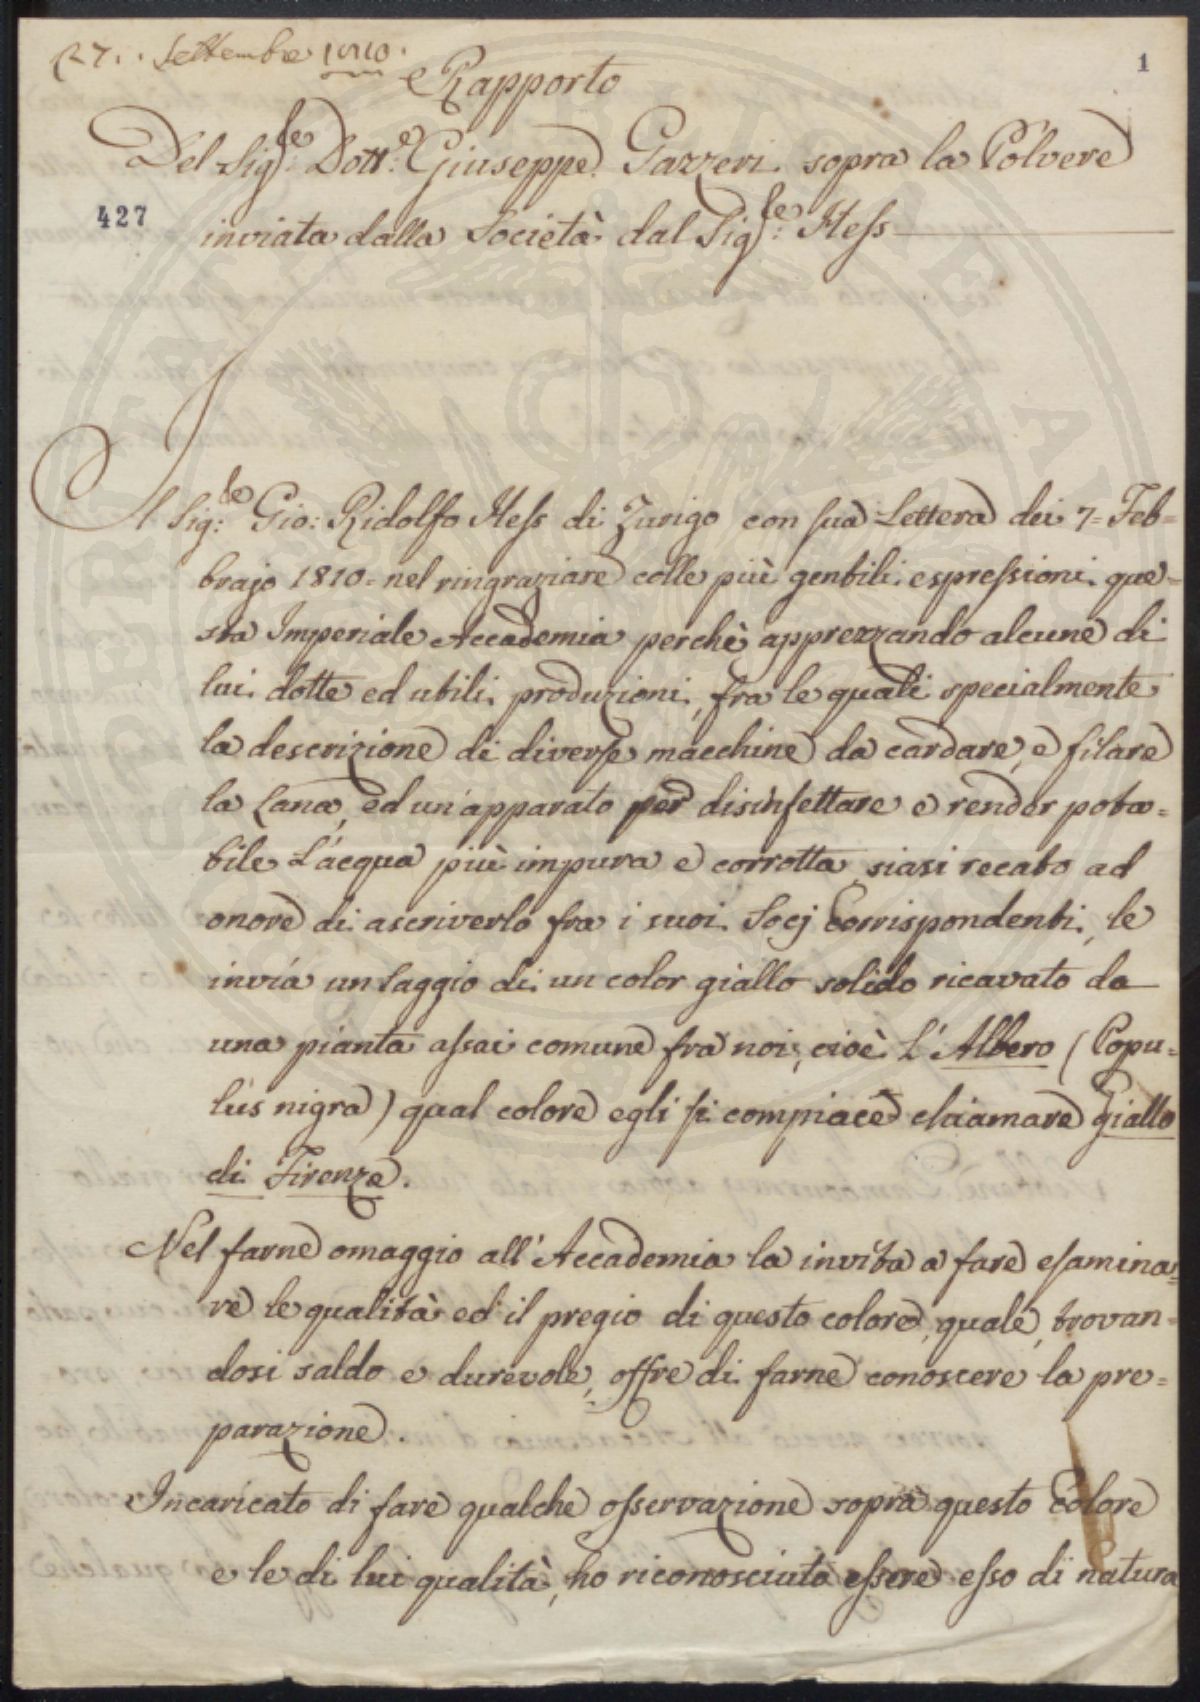 27. Settembre 1810.
1
Rapporto
Del Sig.re Dott.e Giuseppe Gazzeri sopra la Polvere
427
inviata dalla Società dal Sig.re Hess
Il Sig.re Gio: Ridolfo Hess di Zurigo con sua Lettera dei 7= Feb=
brajo 1810= nel ringraziare colle più gentili espressioni que=
sta Imperiale Accademia perchè apprezzando alcune di
lui dotte ed utili produzioni, fra le quali specialmente
la descrizione di diverse macchine da cardare, e filare
la Lana, ed un'apparato per disinfettare e render pota=
bile L'acqua più impura e corrotta, siasi recato ad
onore di ascriverlo fra i suoi Socj Corrispondenti, le
invia un Saggio di un color giallo solido ricavato da
una pianta assai comune fra noi, cioè L'Albero (Popu=
lus nigra) qual colore egli si compiace chiamare Giallo
di Firenze.
Nel farne omaggio all'Accademia la invita a fare esamina=
re le qualità ed il pregio di questo colore, quale, trovan=
dosi saldo e durevole, offre di farne conoscere la pre=
parazione.
Incaricato di fare qualche osservazione sopra questo Colore
e le di lui qualità, ho riconosciuto essere esso di natura